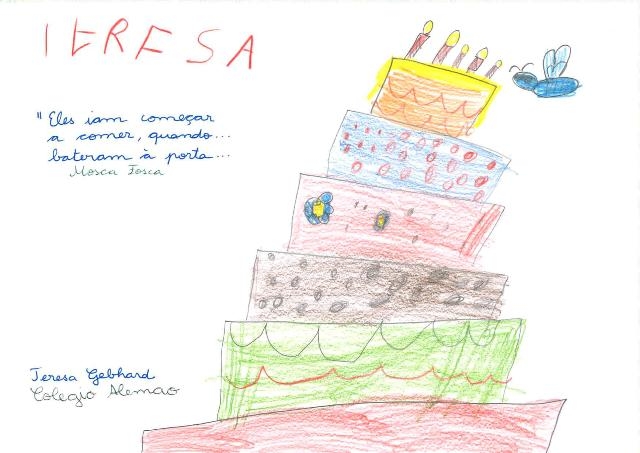 TERESA
"Eles iam começar
a comer, quando...
bateram à porta...
Mosca Fosca
Teresa Gebhard
Colegio Alemao